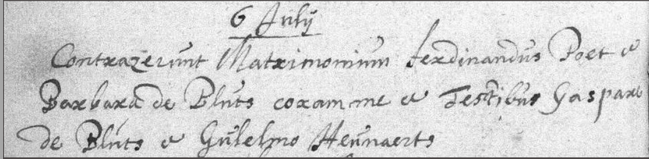 6 Julij
Contraxerunt Matrimonium ferdinandus Poet e
Barbara de Bluts coram me e Testibus Gaspare
de Bluts e Gulelmo Heunaerts